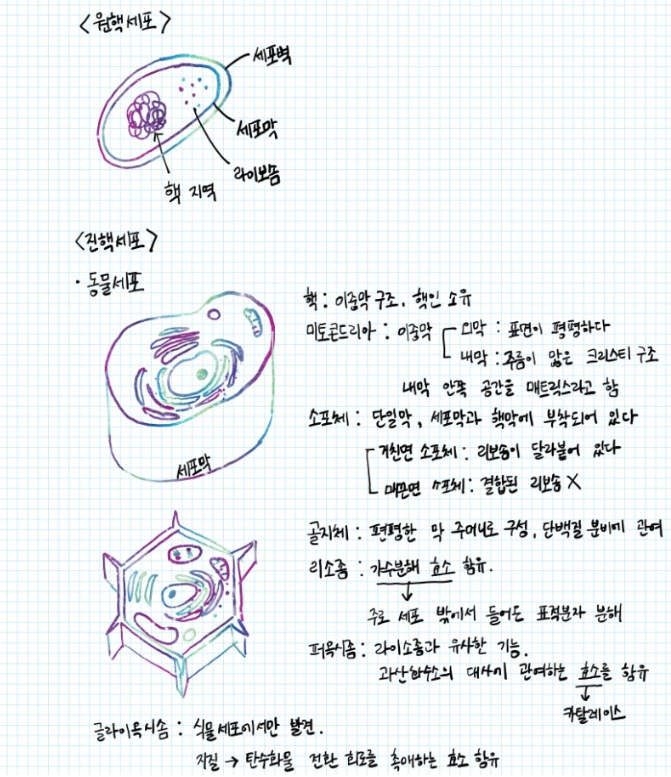 <원핵세포>
세포벽
세포막
라이보솜
핵 지역
<진핵세포>
· 동물세포
핵 : 이중막 구조, 핵인 소유
미토콘드리아 : 이중막 외막 : 표면이 평평하다
내막 : 주름이 많은 크리스티 구조
내막 안쪽 공간을 매트릭스라고 함
소포체 : 단일막, 세포막과 핵막에 부착되어 있다
거친면 소포체 : 리보솜이 달라붙어 있다
매끈면 소포체 : 결합된 리보솜 X
세포막
골지체 : 편평한 막 주머니로 구성, 단백질 분비에 관여
리소좀 : 가수분해 효소 함유.
주로 세포 밖에서 들어온 표적분자 분해
퍼옥시좀 : 라이소좀과 유사한 기능.
과산화수소의 대사에 관여하는 효소를 함유
카탈레이스
글라이옥시솜 : 식물세포에서만 발견.
지질 → 탄수화물 전환 회로를 촉매하는 효소 함유